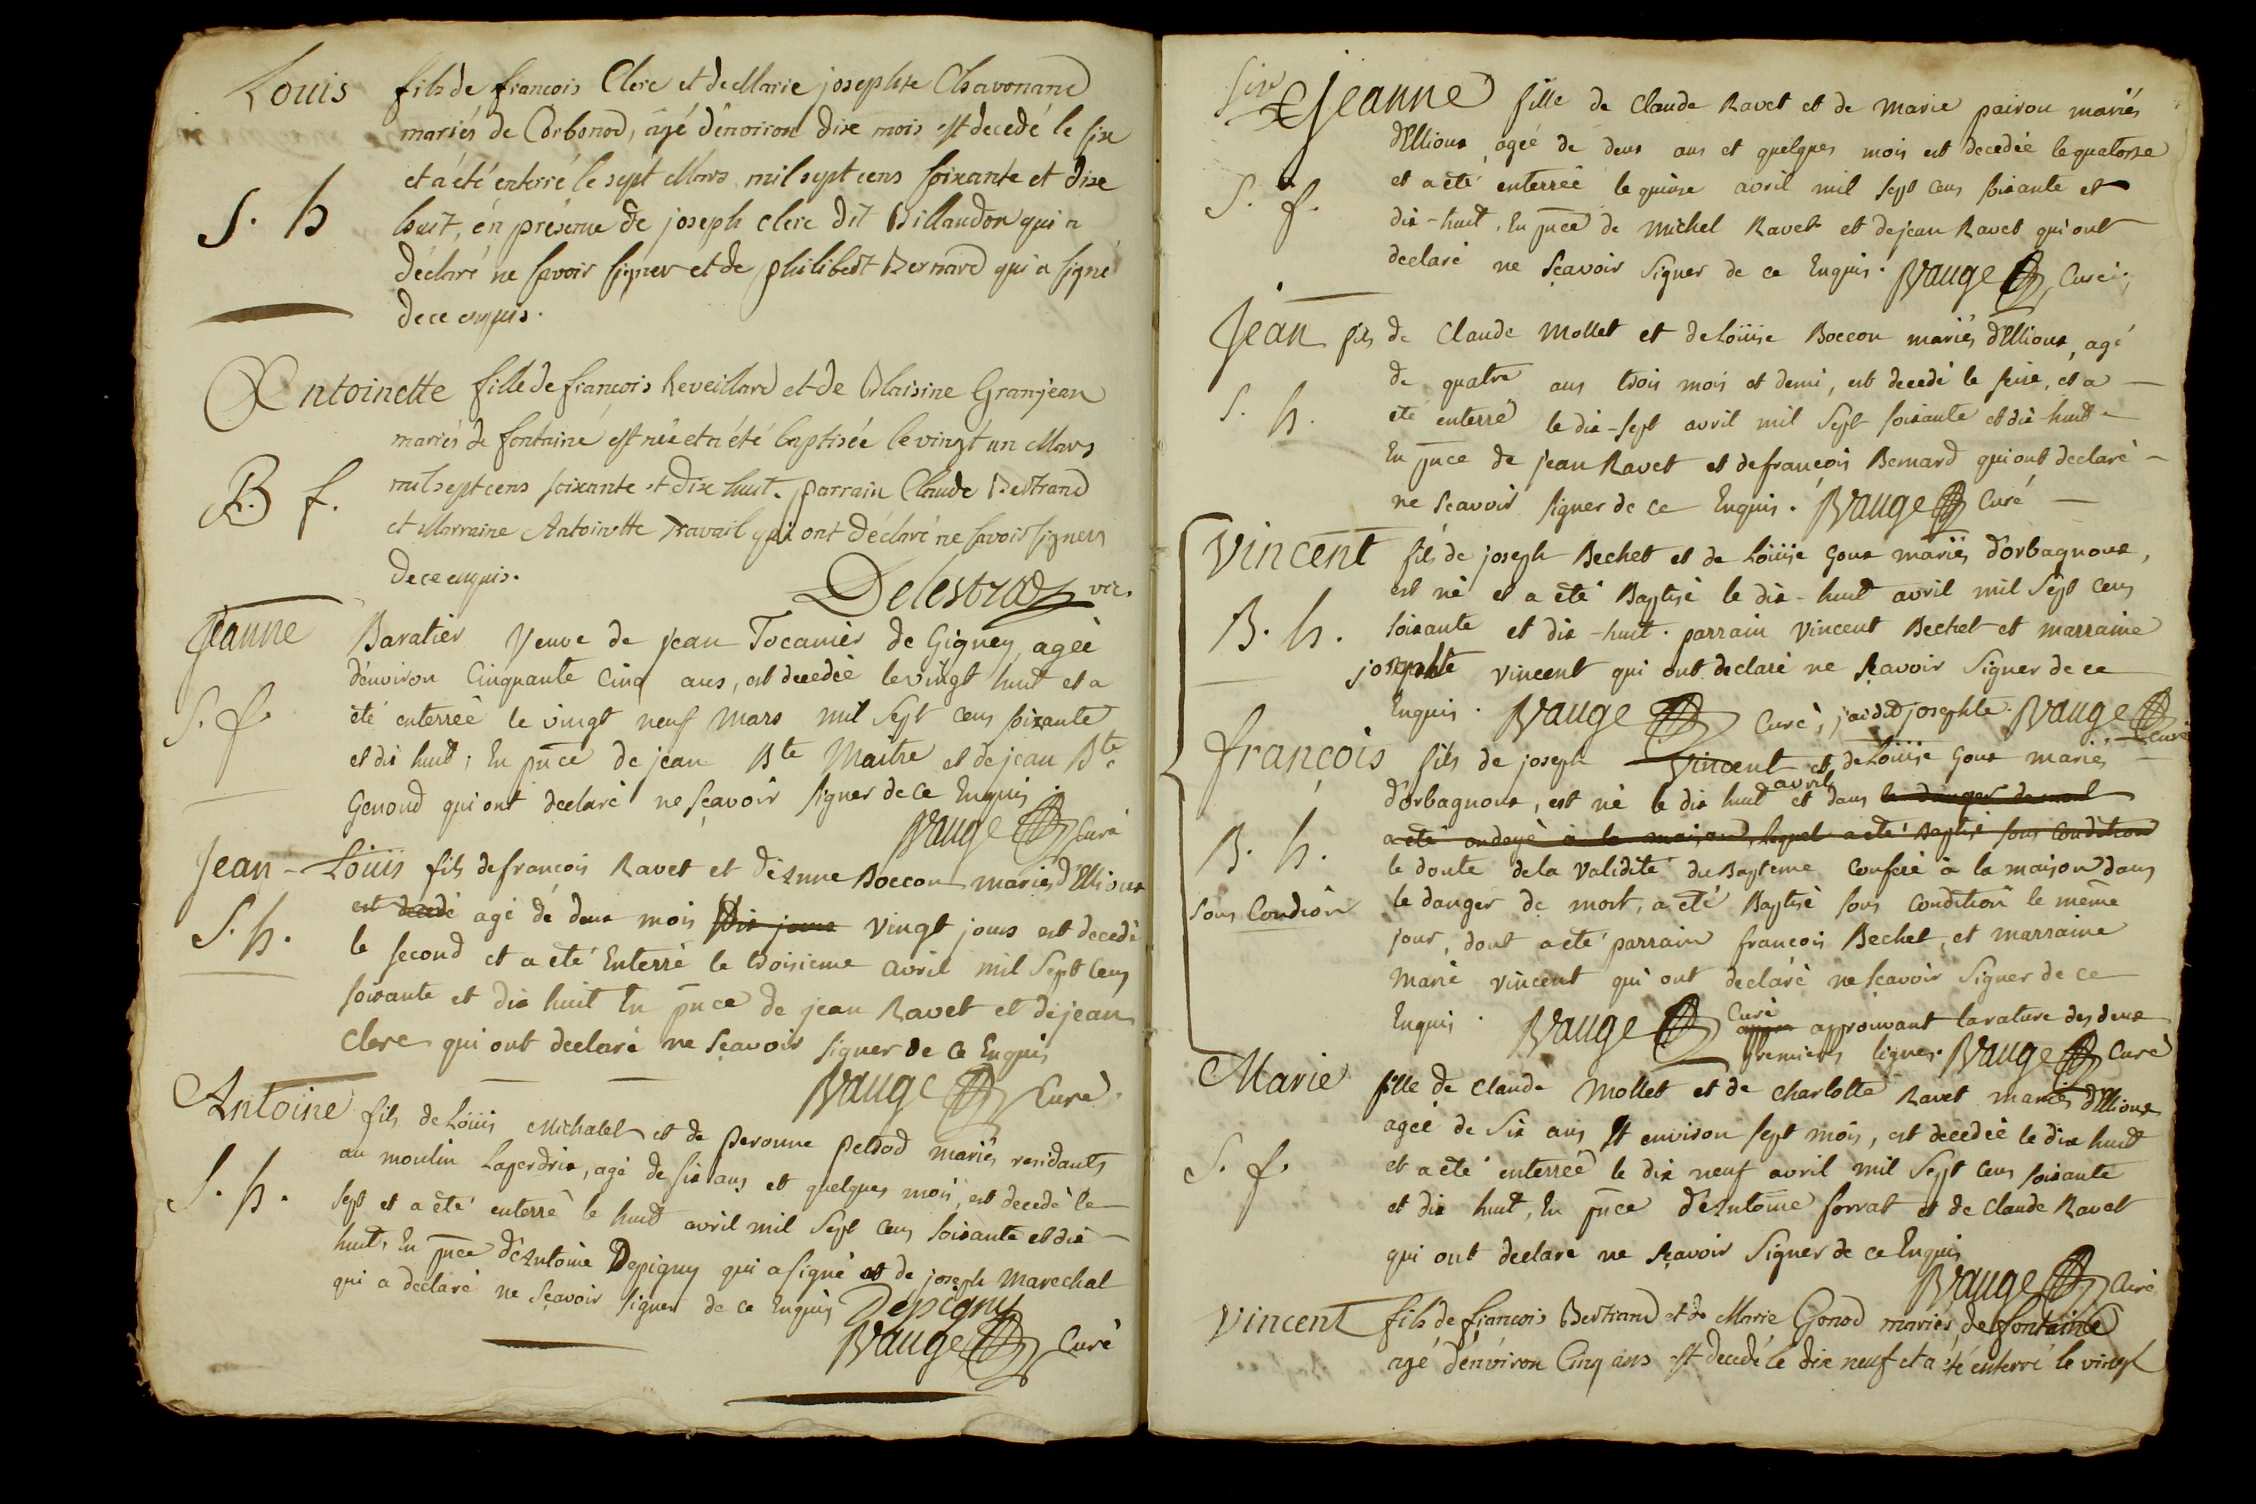 Louis fils de françois Clerc et de Marie josephte Chavonand
mariés de Corbonod, âgé d'énviron dixe mois est decedé le six
et a été enterré le sept Mars mil sept cens soixante et dixe
S. h huit, én présence de joseph clerc dit Billaudon qui a
déclaré ne savoir signer et de philibert Bernard qui a signé
de ce enquis.
Antoinette fille de françois Reveillard et de Blaisine Granjean
mariés de fontaine est née et a été baptisée le vingt un Mars
B. f. mil sept cens soixante et dixe huit. parrain Claude Bertrand
et Marraine Antoinette Travail qui ont déclaré ne savoir signer
de ce enquis.
Delestraz vic.
Jeanne Baratier Veuve de jean Tocanier de Gigney, agée
d'énviron Cinquante Cinq ans, est decedée le vingt huit et a
S. f. été enterreé le vingt neuf Mars mil Sept Cens soixante
et dix huit; En pnce de jean Bte Maitre et de jean Bte
Genoud qui ont declaré ne sçavoir signer de Ce Enquis.
Vauge Curé
Jean-Loüis fils de françois Ravet et d'Anne Boccon mariés d'Ellioux
est decedé agé de deux mois dix jours vingt jours est decedé
S. h. le second et a été Enterré le troisieme avril mil Sept Cens
soixante et dix huit En pnce de jean Ravet et de jean
Clerc qui ont declaré ne sçavoir signer de Ce Enquis
Vauge Curé.
Antoine fils de Loüis Michalet et de peronne petrod mariés residants
au moulin Laperdrix, agé de six ans et quelques mois, est decedé le
S. h. sept et a été enterré le huit avril mil Sept Cens soixante et dix
huit, En pnce d'Antoine Depigny qui a signé et de joseph Marechal
qui a declaré ne sçavoir signer de ce Enquis Depigny
Vauge Curé
Jeanne fille de Claude Ravet et de Marie pairou mariés
d'Ellioux, agée de deux ans et quelques mois est decedée le quatorze
S. f. et a été enterreé le quinze avril mil sept cens soixante et
dix-huit, En pnce de Michel Ravet et de jean Ravet qui ont
declaré ne sçavoir Signer de ce Enquis. Vauge Curé.
Jean fils de Claude Mollet et de Loüise Boccon mariés d'Ellioux, agé
de quatre ans trois mois et demi, est decedé le seize, et a
S. h. été enterré le dix-sept avril mil Sept soixante et dix-huit
En pnce de jean Ravet et de françois Bernard qui ont declaré
ne sçavoir signer de ce Enquis. Vauge Curé
Vincent fils de joseph Bechet et de Loüise Goux mariés d'orbagnoux,
est né et a été Baptisé le dix-huit avril mil Sept Cens
B. h. soixante et dix-huit. parrain Vincent Bechet et marraine
josephte Vincent qui ont declaré ne sçavoir Signer de ce
Enquis. Vauge Curé, j'ai dit josephte. Vauge Curé
françois fils de joseph Vincent et de Loüise Goux mariés
d'orbagnoux, est né le dix huit avril et dans le danger de mort
a été ondoyé à la maison, lequel a été Baptisé sous Condition
B. h. le doute de la Validité du Bapteme Conferé à la maison dans
sous Condiôn le danger de mort, a été Baptisé sous Condition le même
jour, dont a été parrain françois Bechet, et marraine
Marie Vincent qui ont declaré ne sçavoir Signer de ce
Enquis. Vauge Curé approuvant la rature des deux
premieres lignes. Vauge Curé
Marie fille de Claude Mollet et de Charlotte Ravet mariés d'Ellioux
agée de Six ans Et environ sept mois, est decedée le dix huit
S. f. et a été enterreé le dix neuf avril mil Sept Cens soixante
et dix huit, En pnce d'Antoine forrat et de Claude Ravet
qui ont declare ne sçavoir Signer de ce Enquis
Vauge Curé
Vincent fils de françois Bertrand et de Marie Gonod mariés de fontaine
agé d'énviron Cinq ans est decedé le dix neuf et a été enterré le vingt